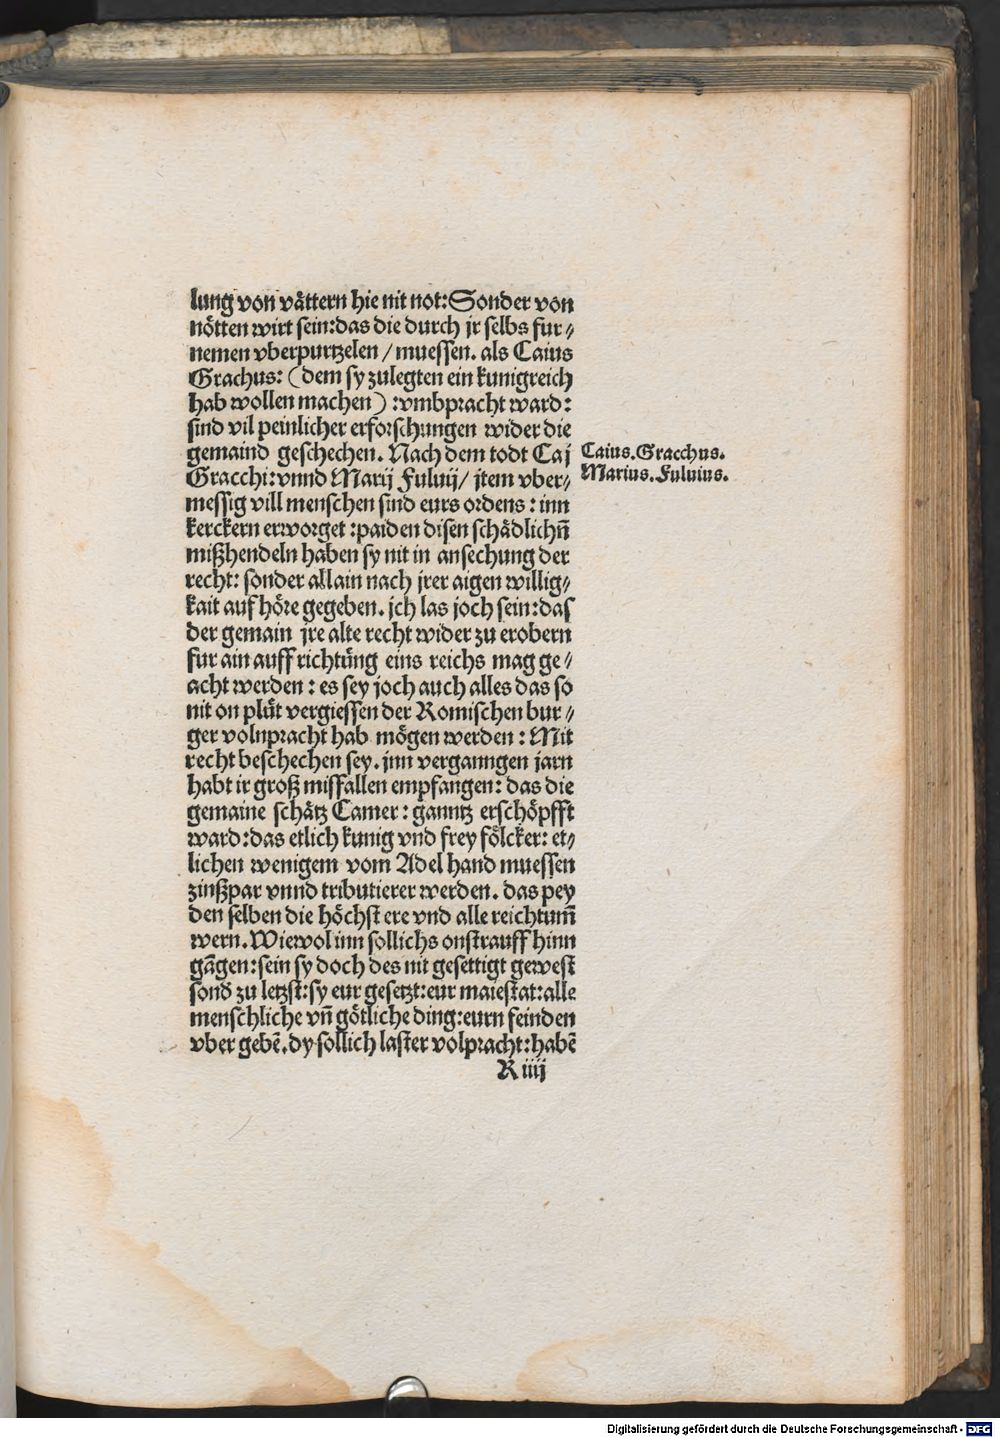 lung von våttern hie nit not: Sonder von
nötten wirt sein: das die durch jr selbs fur⸗
nemen vberpurtzelen / muessen. als Caius
Grachus: (dem sy zulegten ein kunigreich
hab wollen machen): vmbpracht ward:
sind vil peinlicher erforschungen wider die
gemaind geschechen. Nach dem todt Caj
Gracchi: vnnd Marij Fuluij/ jtem vber⸗
messig vill menschen sind eurs ordens: inn
kerckern erworget: paiden disen schådlichn̄
mißhendeln haben sy nit in ansechung der
recht: sonder allain nach jrer aigen willig⸗
kait auf höre gegeben. jch las joch sein: das
der gemain jre alte recht wider zu erobern
fur ain auff richtůng eins reichs mag ge⸗
acht werden: es sey joch auch alles das so
nit on plůt vergiessen der Romischen bur⸗
ger volnpracht hab mögen werden: Mit
recht beschechen sey. jnn verganngen jarn
habt ir groß missfallen empfangen: das die
gemaine schåtz Camer: ganntz erschöpfft
ward: das etlich kunig vnd frey fölcker: et⸗
lichen wenigem vom Adel hand muessen
zinßpar vnnd tributierer werden. das pey
den selben die höchst ere vnd alle reichtum̄
wern. Wiewol inn sollichs onstrauff hinn
gāgen: sein sy doch des nit gesettigt gewest
sond zu letzst: sy eur gesetzt: eur maiestat: alle
menschliche vn̄ götliche ding: eurn feinden
vber gebē. dy sollich laster volpracht: habē
R iiij
Caius. Gracchus.
Marius. Fuluius.
Digitalisierung gefördert durch die Deutsche Forschungsgemeinschaft - DFG